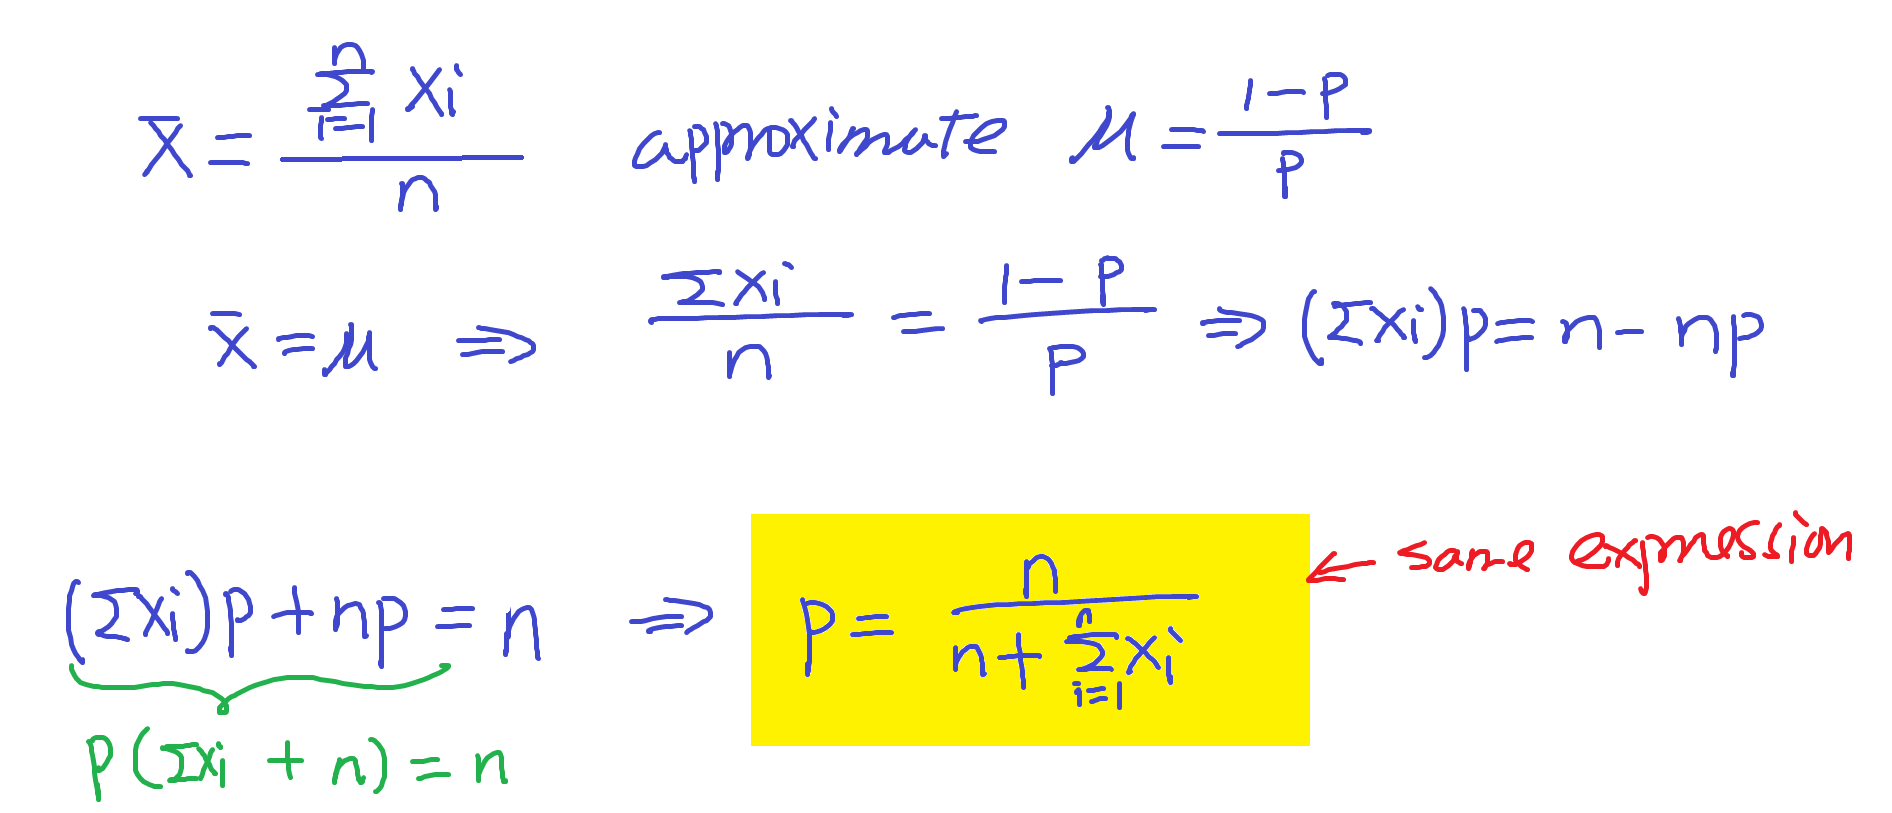 X̄ = (∑_{i=1}^{n} Xi)/n approximate μ = (1-P)/P
x̄ = μ ⇒ (∑Xi)/n = (1-P)/P ⇒ (∑Xi)p = n - np
(∑Xi)p + np = n ⇒ p = n/(n + ∑_{i=1}^{n} Xi) ← same expression
P(∑Xi + n) = n